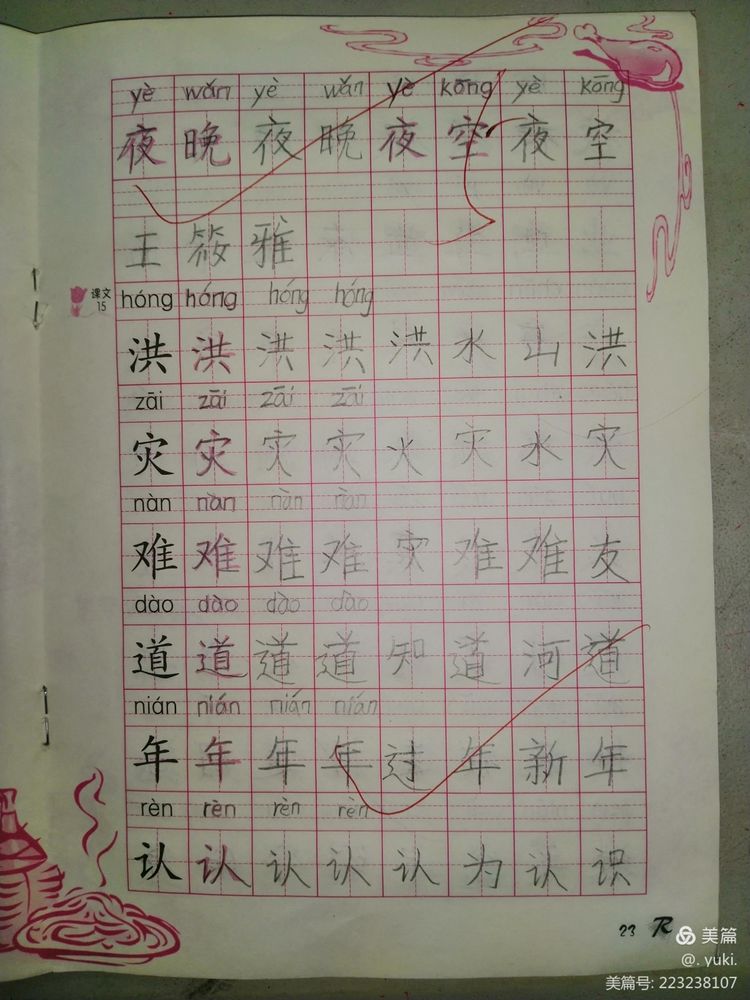 yè wǎn yè wǎn yè kōng yè kōng
夜 晚 夜 晚 夜 空 夜 空
王 筱 雅
课文 15
hóng hóng hóng hóng
洪 洪 洪 洪 洪 水 山 洪
zāi zāi zāi zāi
灾 灾 灾 灾 火 灾 水 灾
nàn nàn nàn nàn
难 难 难 难 灾 难 难 友
dào dào dào dào
道 道 道 道 知 道 河 道
nián nián nián nián
年 年 年 年 过 年 新 年
rèn rèn rèn rèn
认 认 认 认 认 为 认 识
23 R
美篇
@. yuki.
美篇号: 223238107